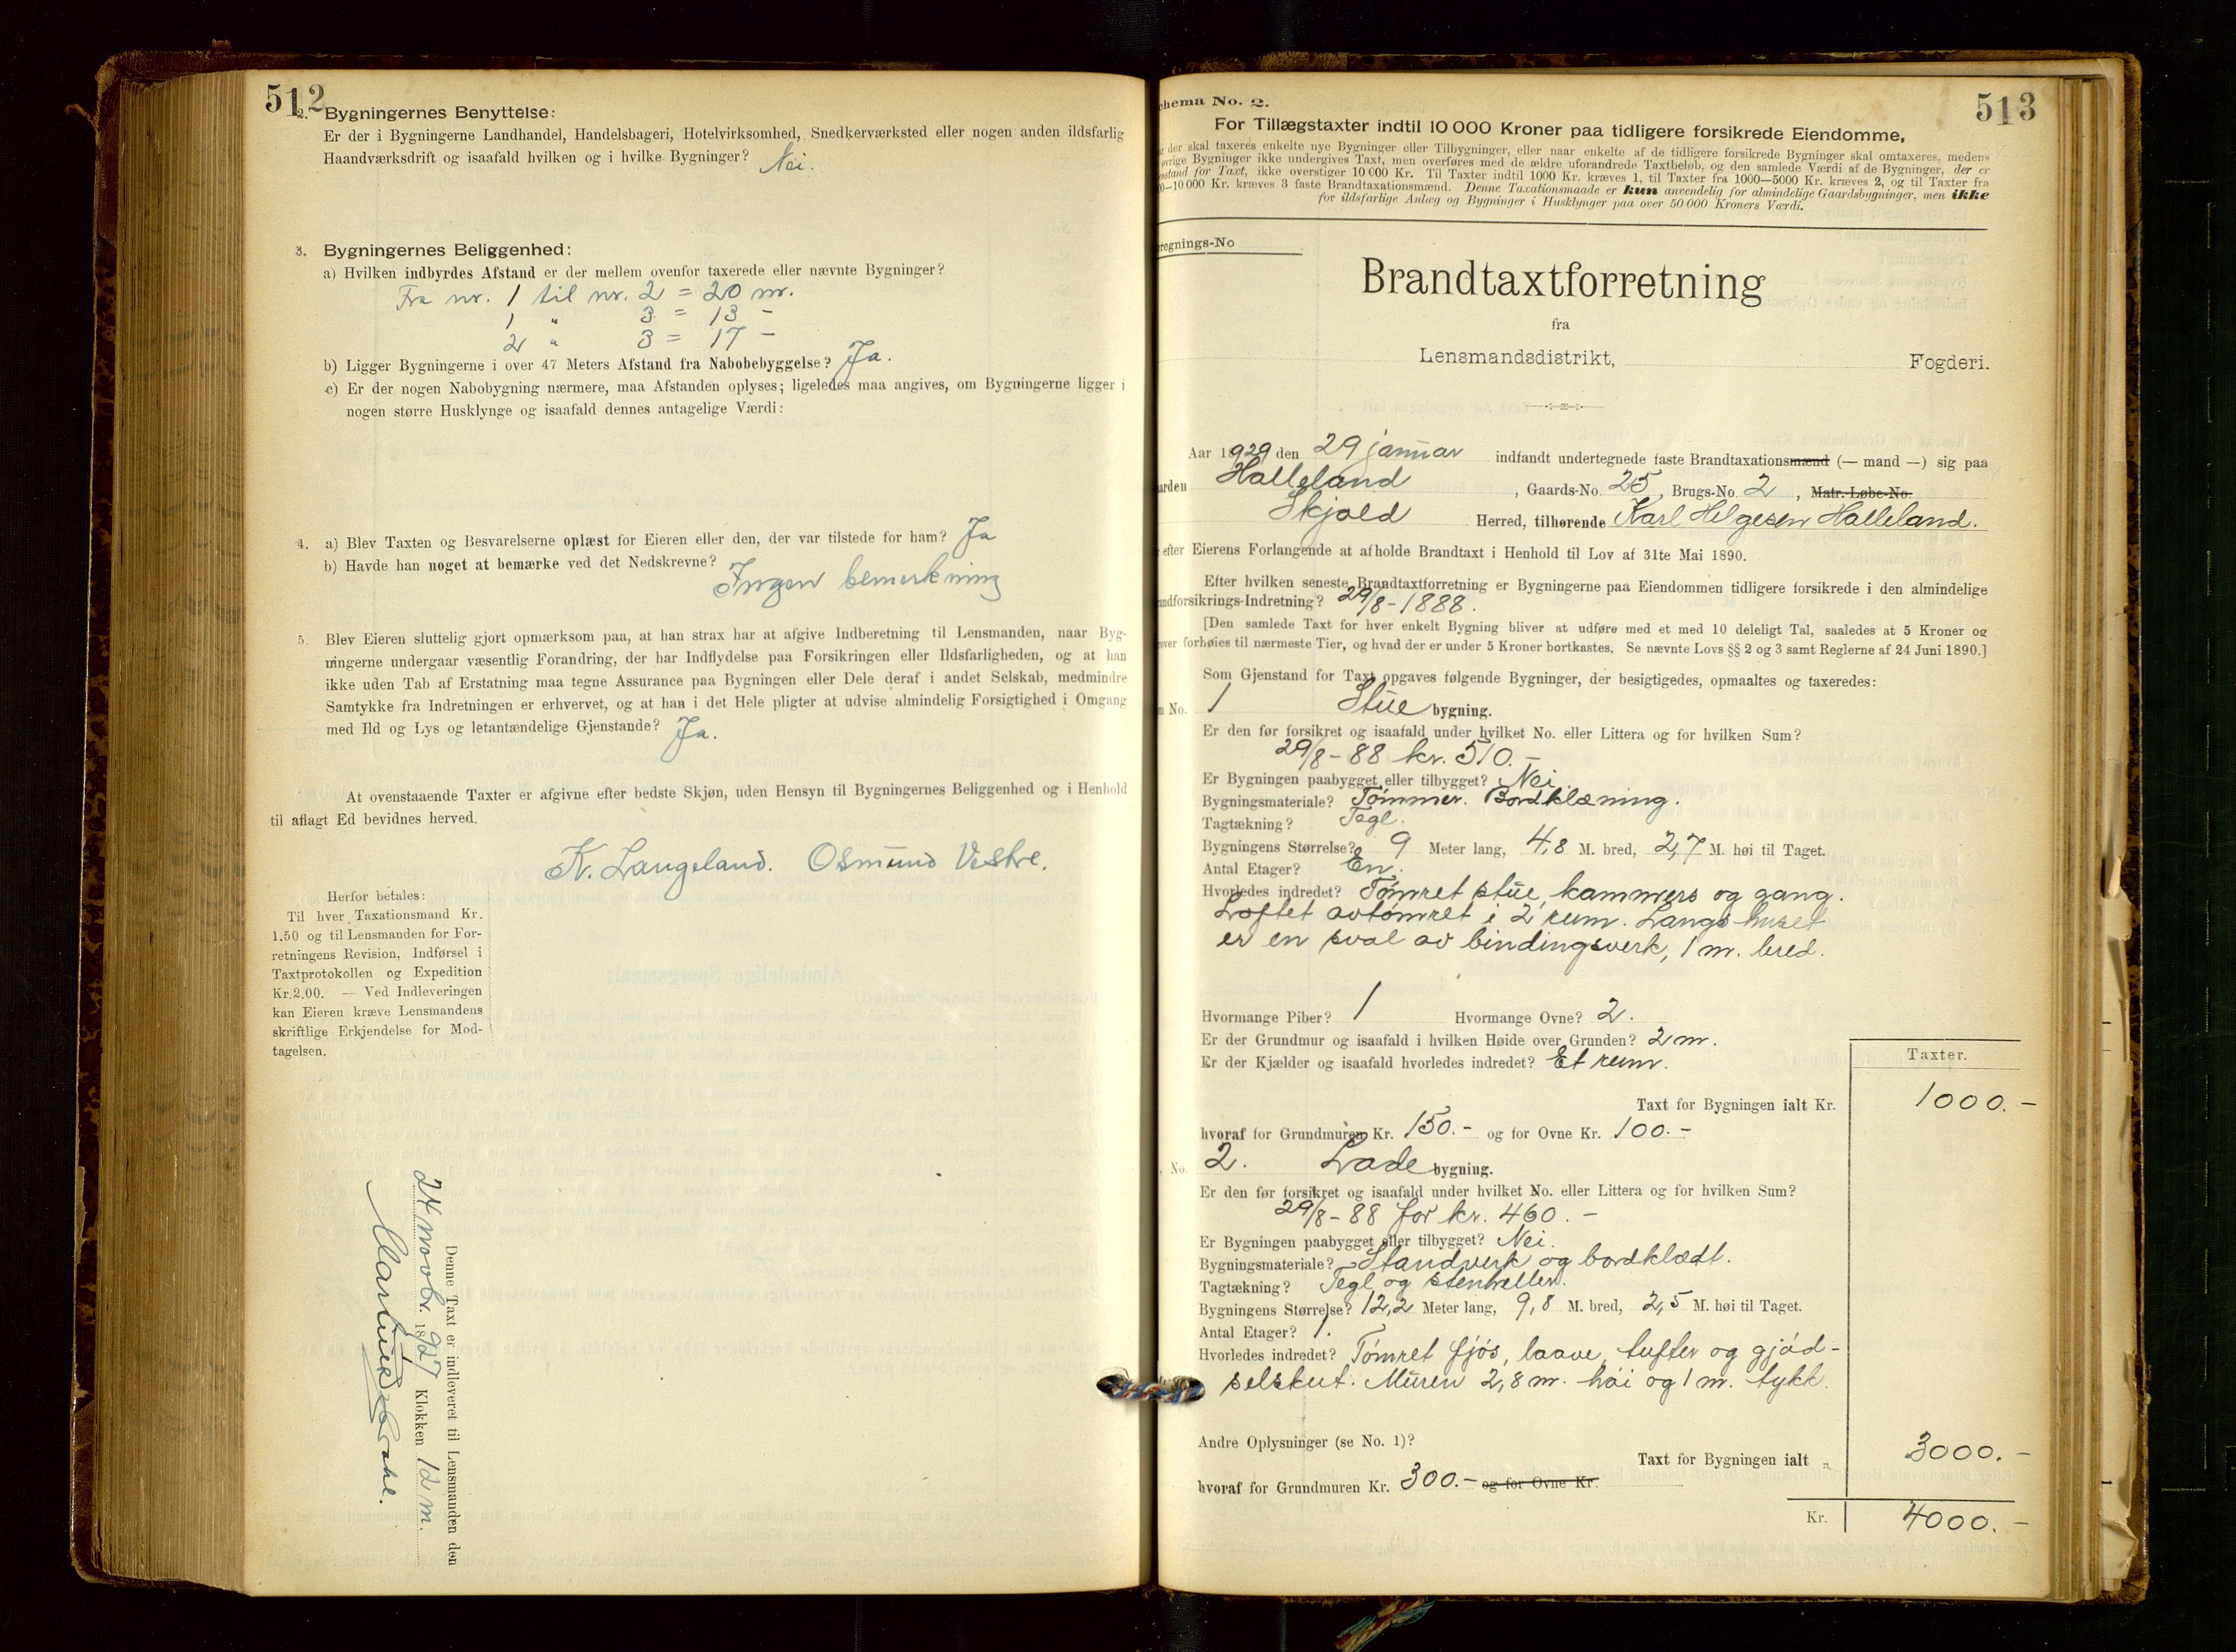 512
2. Bygningernes Benyttelse:
Er der i Bygningerne Landhandel, Handelsbageri, Hotelvirksomhed, Snedkerværksted eller nogen anden ildsfarlig
Haandværksdrift og isaafald hvilken og i hvilke Bygninger? Nei.
3. Bygningernes Beliggenhed:
a) Hvilken indbyrdes Afstand er der mellem ovenfor taxerede eller nævnte Bygninger?
Fra nr. 1 til nr. 2 = 20 m.
1 " 3 = 13 -
2 " 3 = 17 -
b) Ligger Bygningerne i over 47 Meters Afstand fra Nabobebyggelse? Ja.
c) Er der nogen Nabobygning nærmere, maa Afstanden oplyses; ligeledes maa angives, om Bygningerne ligger i
nogen større Husklynge og isaafald dennes antagelige Værdi:
4. a) Blev Taxten og Besvarelserne oplæst for Eieren eller den, der var tilstede for ham? Ja
b) Havde han noget at bemærke ved det Nedskrevne?
Ingen bemerkning
5. Blev Eieren sluttelig gjort opmærksom paa, at han strax har at afgive Indberetning til Lensmanden, naar Byg-
ningerne undergaar væsentlig Forandring, der har Indflydelse paa Forsikringen eller Ildsfarligheden, og at han
ikke uden Tab af Erstatning maa tegne Assurance paa Bygningen eller Dele deraf i andet Selskab, medmindre
Samtykke fra Indretningen er erhvervet, og at han i det Hele pligter at udvise almindelig Forsigtighed i Omgang
med Ild og Lys og letantændelige Gjenstande? Ja.
At ovenstaaende Taxter er afgivne efter bedste Skjøn, uden Hensyn til Bygningernes Beliggenhed og i Henhold
til aflagt Ed bevidnes herved.
K. Langeland. Osmund Vestre.
Herfor betales:
Til hver Taxationsmand Kr.
1.50 og til Lensmanden for For-
retningens Revision, Indførsel i
Taxtprotokollen og Expedition
Kr. 2.00. — Ved Indleveringen
kan Eieren kræve Lensmandens
skriftlige Erkjendelse for Mod-
tagelsen.
Denne Taxt er indleveret til Lensmanden den
24 novbr. 1927 Klokken 12 m.
513
chema No. 2.
For Tillægstaxter indtil 10 000 Kroner paa tidligere forsikrede Eiendomme,
der skal taxeres enkelte nye Bygninger eller Tilbygninger, eller naar enkelte af de tidligere forsikrede Bygninger skal omtaxeres, medens
øvrige Bygninger ikke undergives Taxt, men overføres med de ældre uforandrede Taxtbeløb, og den samlede Værdi af de Bygninger, der er
enstand for Taxt, ikke overstiger 10 000 Kr. Til Taxter indtil 1000 Kr. kræves 1, til Taxter fra 1000—5000 Kr. kræves 2, og til Taxter fra
0—10 000 Kr. kræves 3 faste Brandtaxationsmænd. Denne Taxationsmaade er kun anvendelig for almindelige Gaardsbygninger, men ikke
for ildsfarlige Anlæg og Bygninger i Husklynger paa over 50 000 Kroners Værdi.
regnings-No
Brandtaxtforretning
fra
Lensmandsdistrikt, Fogderi.
Aar 1929 den 29 januar indfandt undertegnede faste Brandtaxationsmænd (— mand —) sig paa
arden Halleland, Gaards-No. 25, Brugs-No. 2, Matr.-Løbe-No.
Skjold Herred, tilhørende Karl Helgesen Halleland.
efter Eierens Forlangende at afholde Brandtaxt i Henhold til Lov af 31te Mai 1890.
Efter hvilken seneste Brandtaxtforretning er Bygningerne paa Eiendommen tidligere forsikrede i den almindelige
andforsikrings-Indretning? 29/8-1888.
[Den samlede Taxt for hver enkelt Bygning bliver at udføre med et med 10 deleligt Tal, saaledes at 5 Kroner og
over forhøies til nærmeste Tier, og hvad der er under 5 Kroner bortkastes. Se nævnte Lovs §§ 2 og 3 samt Reglerne af 24 Juni 1890.]
Som Gjenstand for Taxt opgaves følgende Bygninger, der besigtigedes, opmaaltes og taxeredes:
No. 1 Stue bygning.
Er den før forsikret og isaafald under hvilket No. eller Littera og for hvilken Sum?
29/8-88 kr. 510.-
Er Bygningen paabygget eller tilbygget? Nei.
Bygningsmateriale? Tømmer. Bordklæning.
Tagtækning? Tegl.
Bygningens Størrelse? 9 Meter lang, 4,8 M. bred, 2,7 M. høi til Taget.
Antal Etager? En.
Hvorledes indredet? Tømret stue, kammers og gang.
Loftet avtømret i 2 rum. Langs huset
er en sval av bindingsverk, 1 m. bred.
Hvormange Piber? 1 Hvormange Ovne? 2.
Er der Grundmur og isaafald i hvilken Høide over Grunden? 2 m.
Er der Kjælder og isaafald hvorledes indredet? Et rum.
Taxter.
Taxt for Bygningen ialt Kr. 1000.-
hvoraf for Grundmuren Kr. 150.- og for Ovne Kr. 100.-
No. 2. Lade bygning.
Er den før forsikret og isaafald under hvilket No. eller Littera og for hvilken Sum?
29/8-88 for kr. 460.-
Er Bygningen paabygget eller tilbygget? Nei.
Bygningsmateriale? Standverk og bordklædt.
Tagtækning? Tegl og stenheller.
Bygningens Størrelse? 12,2 Meter lang, 9,8 M. bred, 2,5 M. høi til Taget.
Antal Etager? 1.
Hvorledes indredet? Tømret fjøs, laave, tufter og gjød-
selskut. Muren 2,8 m. høi og 1 m. tykk.
Andre Oplysninger (se No. 1)?
Taxt for Bygningen ialt „ 3000.-
hvoraf for Grundmuren Kr. 300.- og for Ovne Kr.
Kr. 4000.-